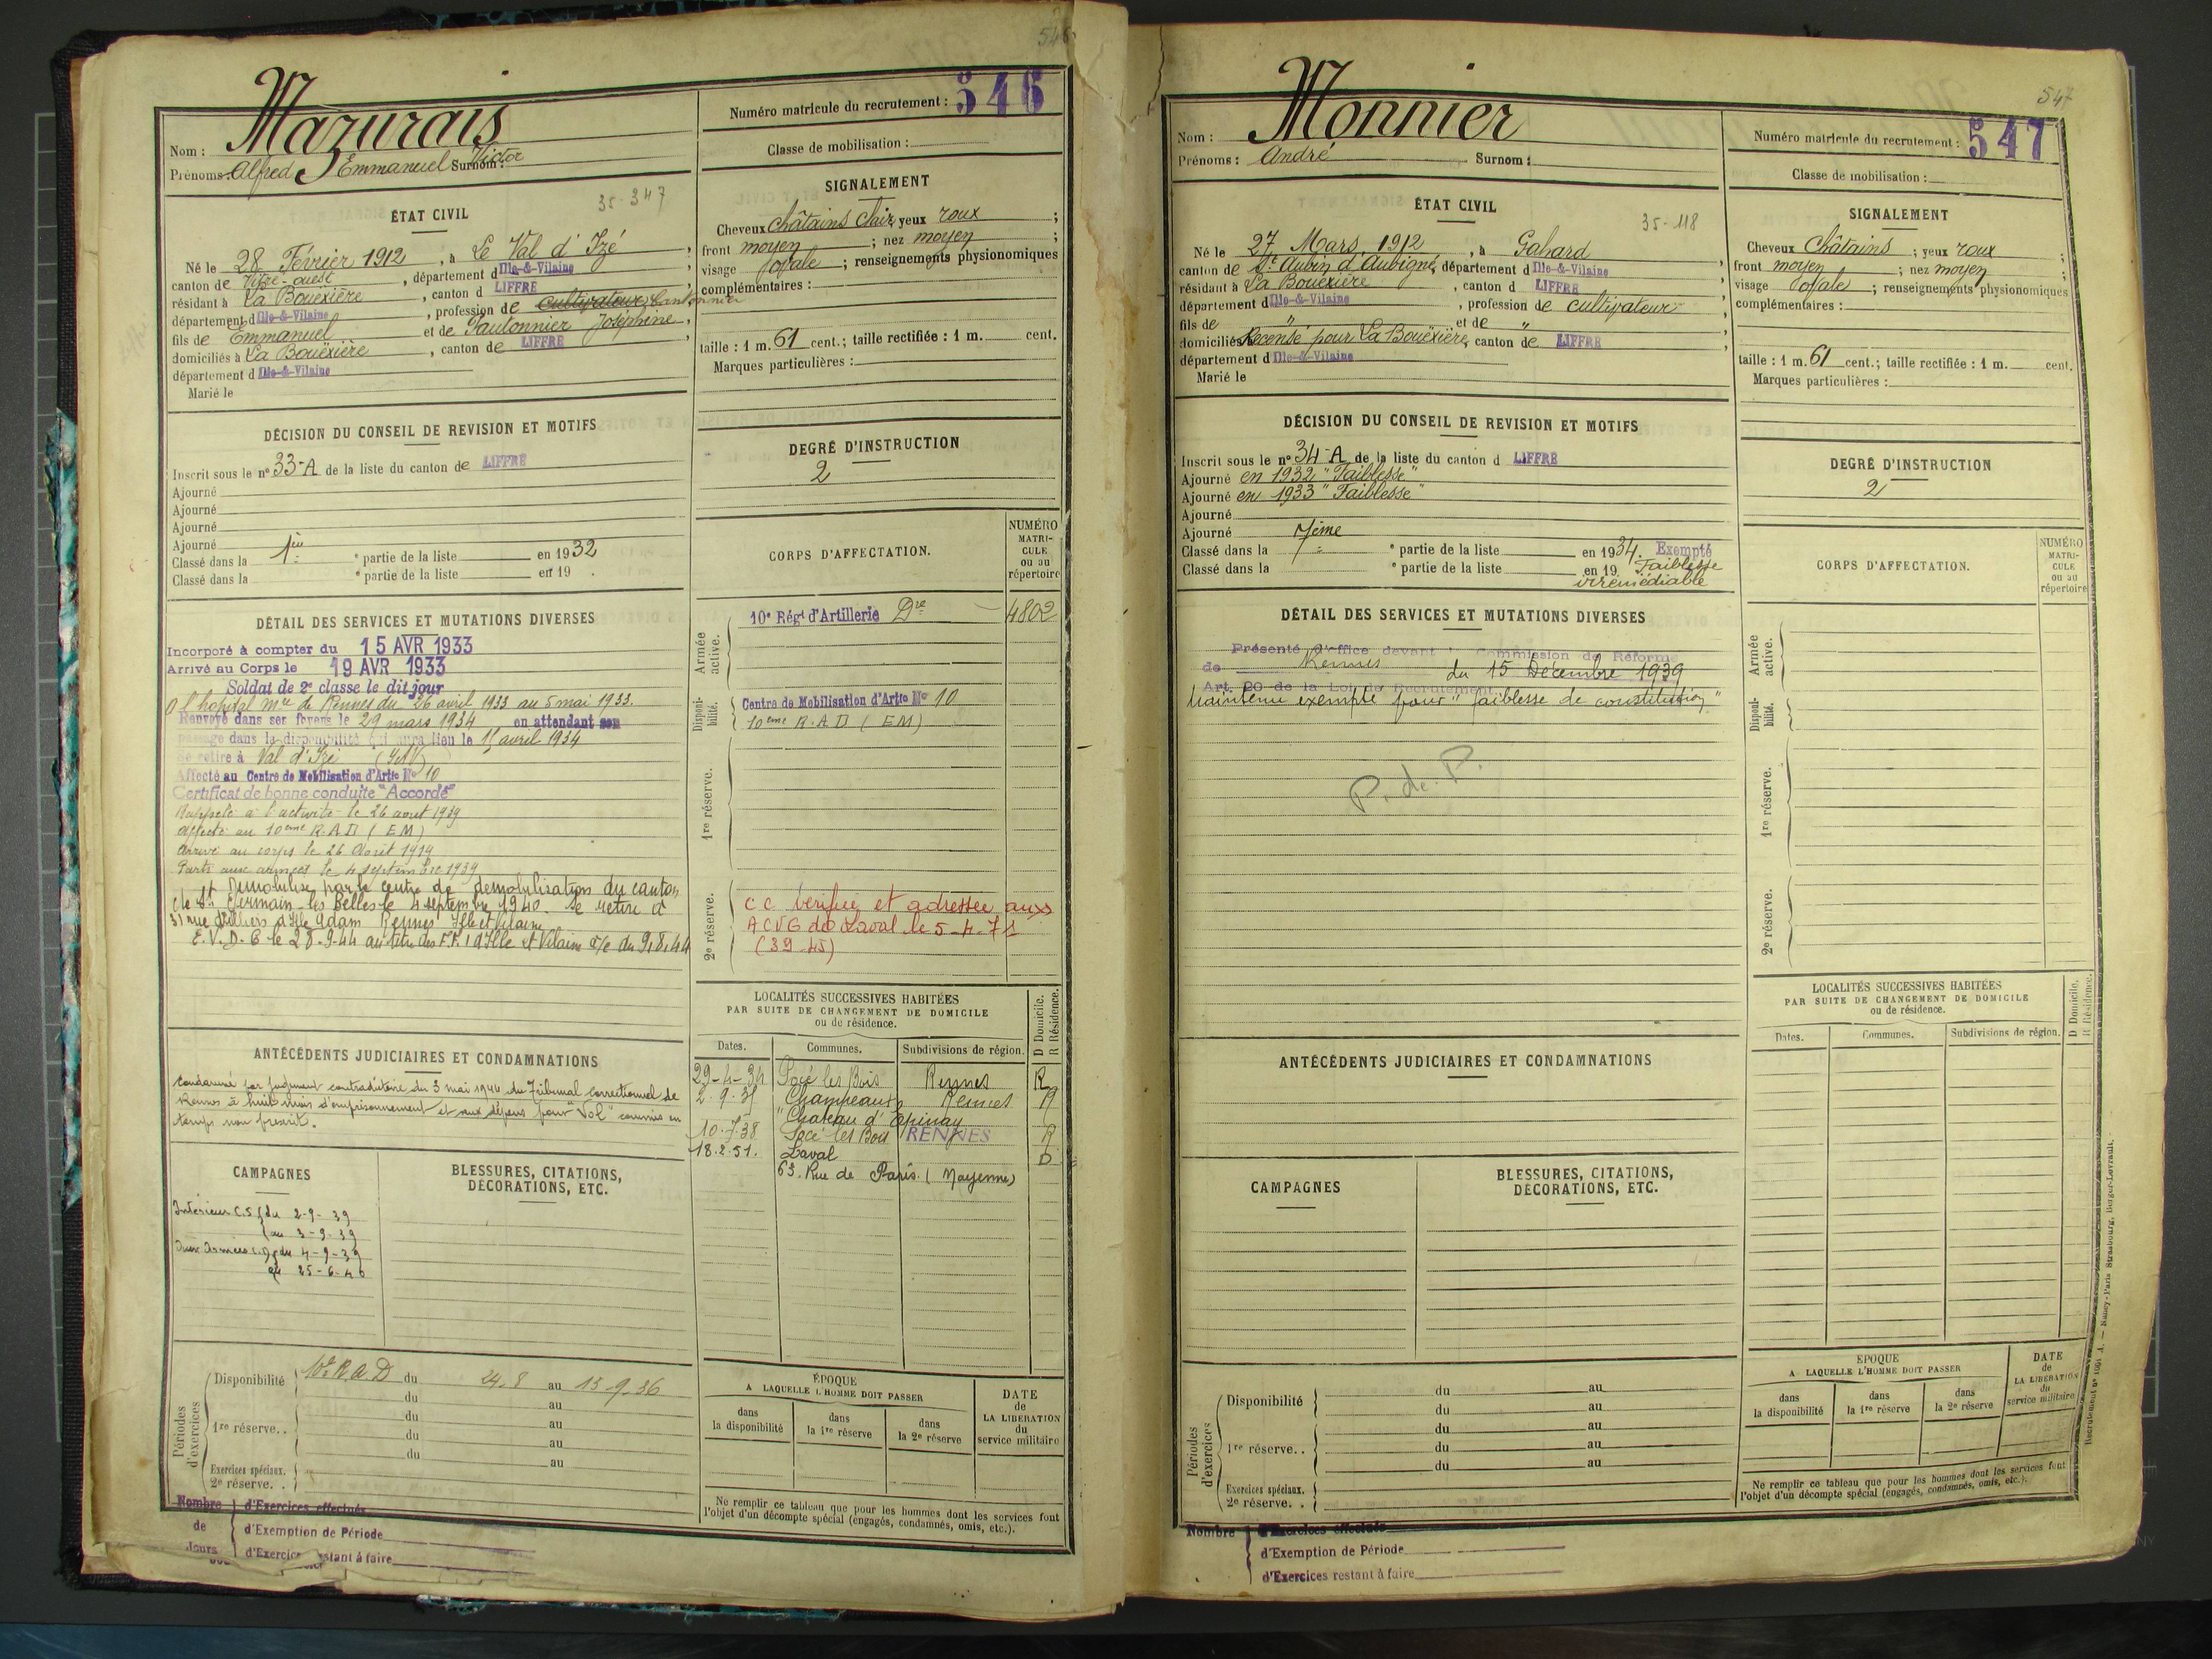 546
Mazurais
Nom :
Prénoms : Alfred Emmanuel Surnom : Victor
Numéro matricule du recrutement : 546
Classe de mobilisation :
35-347
ÉTAT CIVIL
Né le 28 Février 1912, à Le Val d'Izé,
canton de Vitré-ouest, département d Ille-&-Vilaine
résidant à La Bouëxière, canton d LIFFRE
département d Ille-&-Vilaine, profession de cultivateur Cantonnier
fils de Emmanuel et de Paulonnier Joséphine,
domiciliés à La Bouëxière, canton de LIFFRE,
département d Ille-&-Vilaine
Marié le
SIGNALEMENT
Cheveux châtains clair yeux roux ;
front moyen ; nez moyen ;
visage ovale ; renseignements physionomiques
complémentaires :
taille : 1 m. 61 cent.; taille rectifiée : 1 m. cent.
Marques particulières :
DÉCISION DU CONSEIL DE REVISION ET MOTIFS
Inscrit sous le n° 33-A de la liste du canton de LIFFRE
Ajourné
Ajourné
Ajourné
Ajourné
Classé dans la 1ère e partie de la liste en 1932
Classé dans la e partie de la liste en 19 .
DEGRÉ D'INSTRUCTION
2
DÉTAIL DES SERVICES ET MUTATIONS DIVERSES
Incorporé à compter du 15 AVR 1933
Arrivé au Corps le 19 AVR 1933
Soldat de 2e classe le dit jour
A l'hôpital mre de Rennes du 26 avril 1933 au 5 mai 1933.
Renvoyé dans ses foyers le 29 mars 1934 en attendant son
passage dans la disponibilité qui aura lieu le 15 avril 1934
Se retire à Val d'Izé (I&V)
Affecté au Centre de Mobilisation d'Artie No 10
Certificat de bonne conduite "Accordé"
Rappelé à l'activité le 26 aout 1939
affecté au 10eme R.A.D (EM)
arrivé au corps le 26 Aout 1939
Parti aux armées le 4 septembre 1939
Démobilisé par le centre de démobilisation du canton
de St Germain les Belles le 4 septembre 1940. Se retire à
31 rue Villiers d'Isle Adam Rennes Ille et Vilaine
E.V.D.G le 28-9-44 au titre des F.F.I d'Ille et Vilaine a/c du 9.8.44
CORPS D'AFFECTATION.
NUMÉRO
MATRI-
CULE
ou au
répertoire
Armée active.
10e Régt d'Artillerie Dre 4802
Disponi-bilité.
Centre de Mobilisation d'Artie No 10
10eme R.A.D (EM)
1re réserve.
2e réserve.
CC vérifiée et adressée aux
ACVG de Laval le 5-4-71
(39-45)
ANTÉCÉDENTS JUDICIAIRES ET CONDAMNATIONS
Condamné par jugement contradictoire du 3 mai 1944 du Tribunal correctionnel de
Rennes à huit mois d'emprisonnement et aux dépens pour "Vol" commis en
temps non prescrit.
LOCALITÉS SUCCESSIVES HABITÉES
PAR SUITE DE CHANGEMENT DE DOMICILE
ou de résidence.
D Domicile.
R Résidence.
Dates. Communes. Subdivisions de région.
29-4-34 Pocé les Bois Rennes R
2.9.35 Champeaux Rennes R
"Château d'Epinay
10.7.38 Pocé les Bois RENNES R
18.2.51. Laval D
63. Rue de Paris. (Mayenne)
CAMPAGNES
Intérieur C.S du 2-9-39
au 3-9-39
Aux Armées C.D du 4-9-39
au 25-6-40
BLESSURES, CITATIONS,
DÉCORATIONS, ETC.
Périodes d'exercices
Disponibilité 10e R.A.D du 24.8 au 13.9.36
du au
1re réserve.. du au
du au
du au
Exercices spéciaux.
2e réserve. .
ÉPOQUE
A LAQUELLE L'HOMME DOIT PASSER
dans la disponibilité
dans la 1re réserve
dans la 2e réserve
DATE
de
LA LIBERATION
du
service militaire
Ne remplir ce tableau que pour les hommes dont les services font
l'objet d'un décompte spécial (engagés, condamnés, omis, etc.).
Nombre d'Exercices effectués
de d'Exemption de Période
Jours d'Exercices restant à faire
547
Monnier
Nom :
Prénoms : André Surnom :
Numéro matricule du recrutement : 547
Classe de mobilisation :
35-118
ÉTAT CIVIL
Né le 27 Mars 1912, à Gahard,
canton de St Aubin d'Aubigné, département d Ille-&-Vilaine
résidant à La Bouëxière, canton d LIFFRE
département d Ille-&-Vilaine, profession de cultivateur,
fils de " et de ",
domiciliés Recensé pour La Bouëxière, canton de LIFFRE,
département d Ille-&-Vilaine
Marié le
SIGNALEMENT
Cheveux Châtains ; yeux roux ;
front moyen ; nez moyen ;
visage ovale ; renseignements physionomiques
complémentaires :
taille : 1 m. 61 cent.; taille rectifiée : 1 m. cent.
Marques particulières :
DÉCISION DU CONSEIL DE REVISION ET MOTIFS
Inscrit sous le n° 34-A de la liste du canton d LIFFRE
Ajourné en 1932 "Faiblesse"
Ajourné en 1933 "Faiblesse"
Ajourné
Ajourné
Classé dans la 7ème e partie de la liste en 1934. Exempté
Classé dans la e partie de la liste en 19 Faiblesse
irrémédiable
DEGRÉ D'INSTRUCTION
2
DÉTAIL DES SERVICES ET MUTATIONS DIVERSES
Présenté d'office devant Commission de Réforme
de Rennes du 15 Décembre 1939
Art. 20 de la Loi de Recrutement
Maintenu exempté pour "faiblesse de constitution"
P. de. P.
CORPS D'AFFECTATION.
NUMÉRO
MATRI-
CULE
ou au
répertoire
Armée active.
Disponi-bilité.
1re réserve.
2e réserve.
ANTÉCÉDENTS JUDICIAIRES ET CONDAMNATIONS
LOCALITÉS SUCCESSIVES HABITÉES
PAR SUITE DE CHANGEMENT DE DOMICILE
ou de résidence.
D Domicile.
R Résidence.
Dates. Communes. Subdivisions de région.
CAMPAGNES
BLESSURES, CITATIONS,
DÉCORATIONS, ETC.
Périodes d'exercices
Disponibilité du au
du au
du au
1re réserve.. du au
du au
Exercices spéciaux.
2e réserve. .
ÉPOQUE
A LAQUELLE L'HOMME DOIT PASSER
dans la disponibilité
dans la 1re réserve
dans la 2e réserve
DATE
de
LA LIBERATION
du
service militaire
Ne remplir ce tableau que pour les hommes dont les services font
l'objet d'un décompte spécial (engagés, condamnés, omis, etc.).
Nombre d'Exercices effectués
d'Exemption de Période
d'Exercices restant à faire
Nancy-Paris Strasbourg, Berger-Levrault.